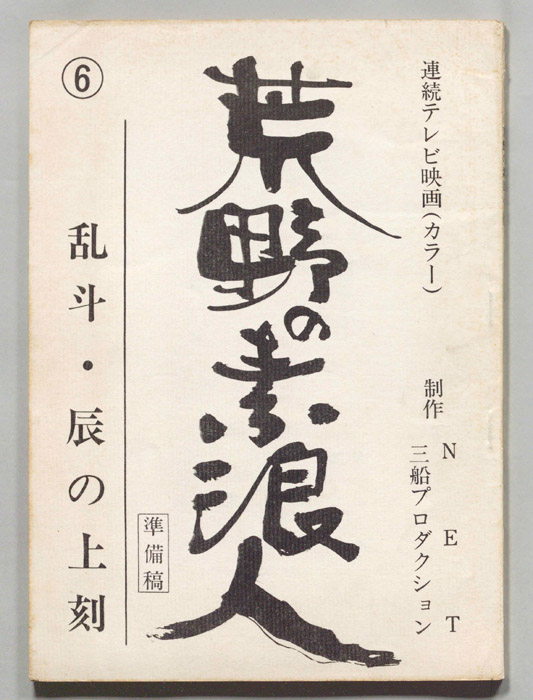 連続テレビ映画(カラー)
制作
NET
三船プロダクション
荒野の素浪人
準備稿
⑥
乱斗・辰の上刻